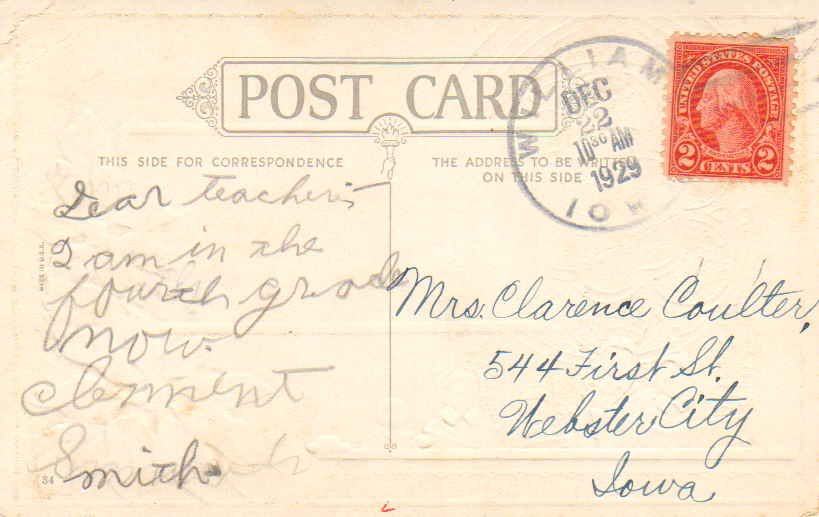 POST CARD
THIS SIDE FOR CORRESPONDENCE
THE ADDRESS TO BE WRITTEN
ON THIS SIDE
WILLIAMS
DEC
22
10 30 AM
1929
IOWA
UNITED STATES POSTAGE
2 CENTS 2
Dear teacher
I am in the
fourth grade
now.
Clement
Smith
MADE IN U.S.A.
84
Mrs. Clarence Coulter,
544 First St.
Webster City
Iowa